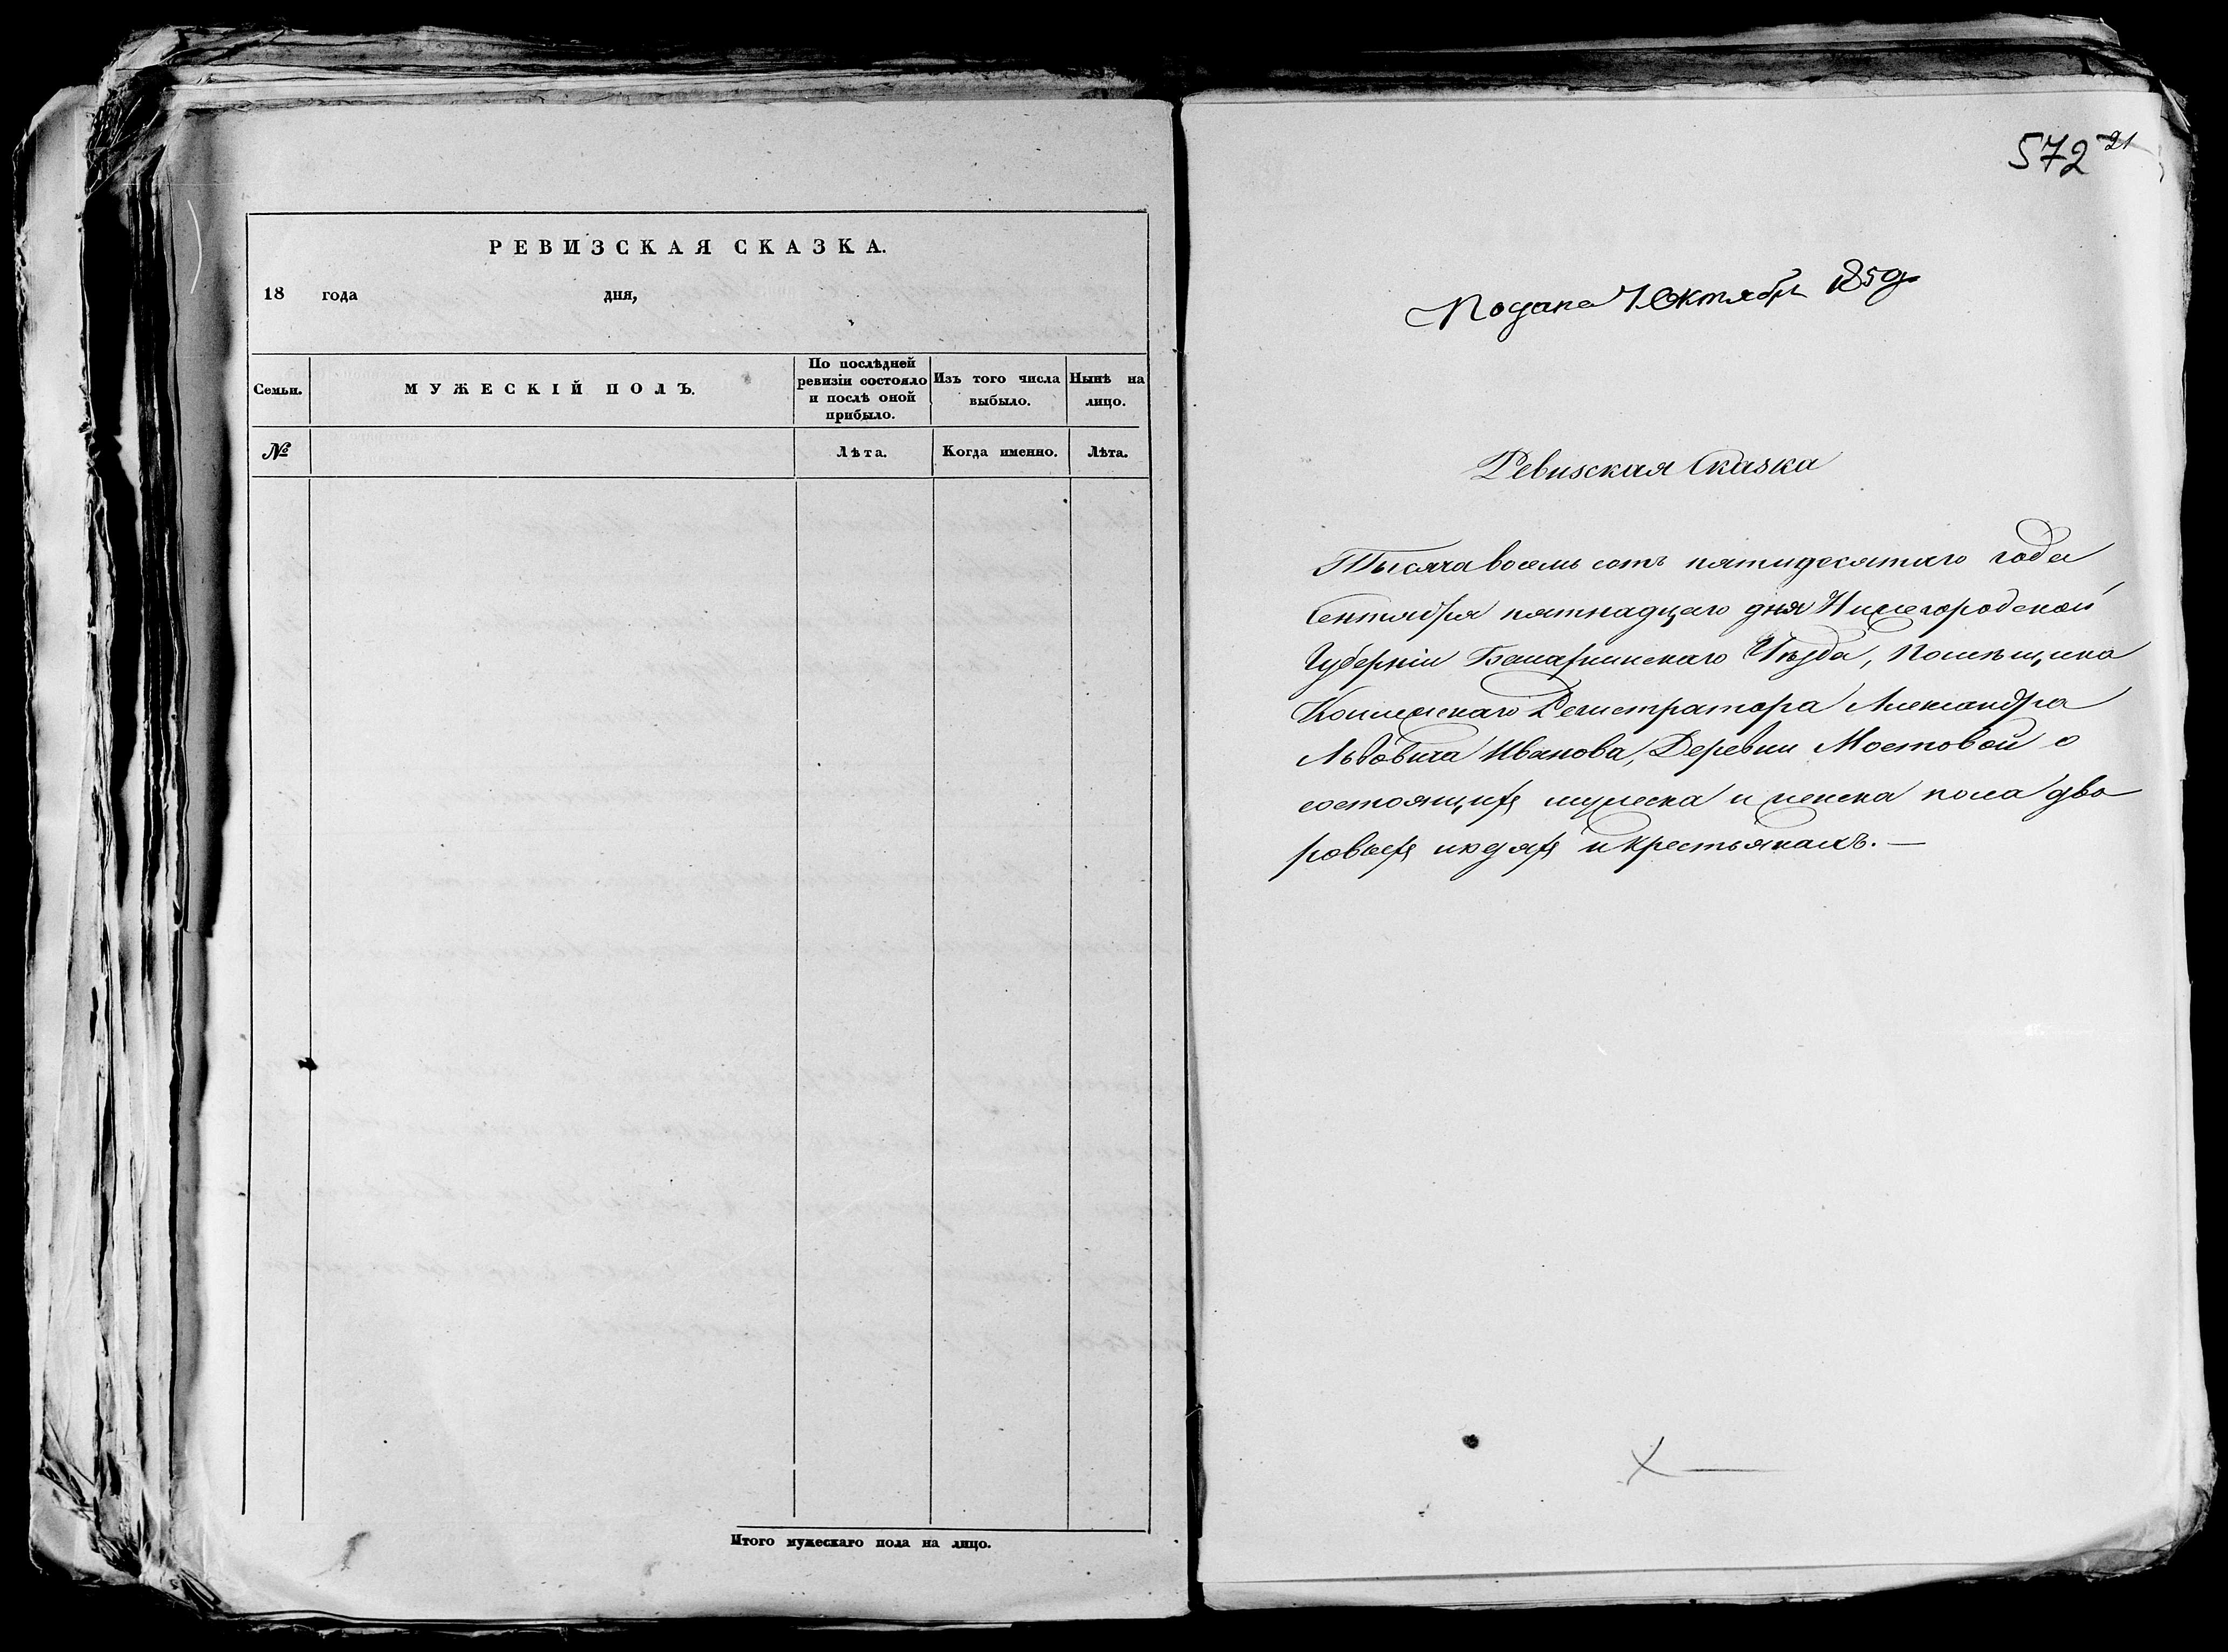 РЕВИЗСКАЯ СКАЗКА.
18 года дня,
Семьи.
МУЖЕСКІЙ ПОЛЪ.
По послѣдней ревизіи состояло и послѣ оной прибыло.
Изъ того числа выбыло.
Нынѣ на лицо.
№
Лѣта.
Когда именно.
Лѣта.
Итого мужескаго пола на лицо.
572 21
Подана 7 Октября
Ревизская Сказка
Тысяча восемь сотъ пятидесятаго года
Сентября пятнадцаго дня Нижегородской
Губерніи Уѣзда, Помѣщика
Коллежскаго Регистратора Александра
Львовича Иванова, Деревни Мостовой о
состоящихъ мужеска и женска пола дво
ровыхъ людяхъ и крестьянахъ. —